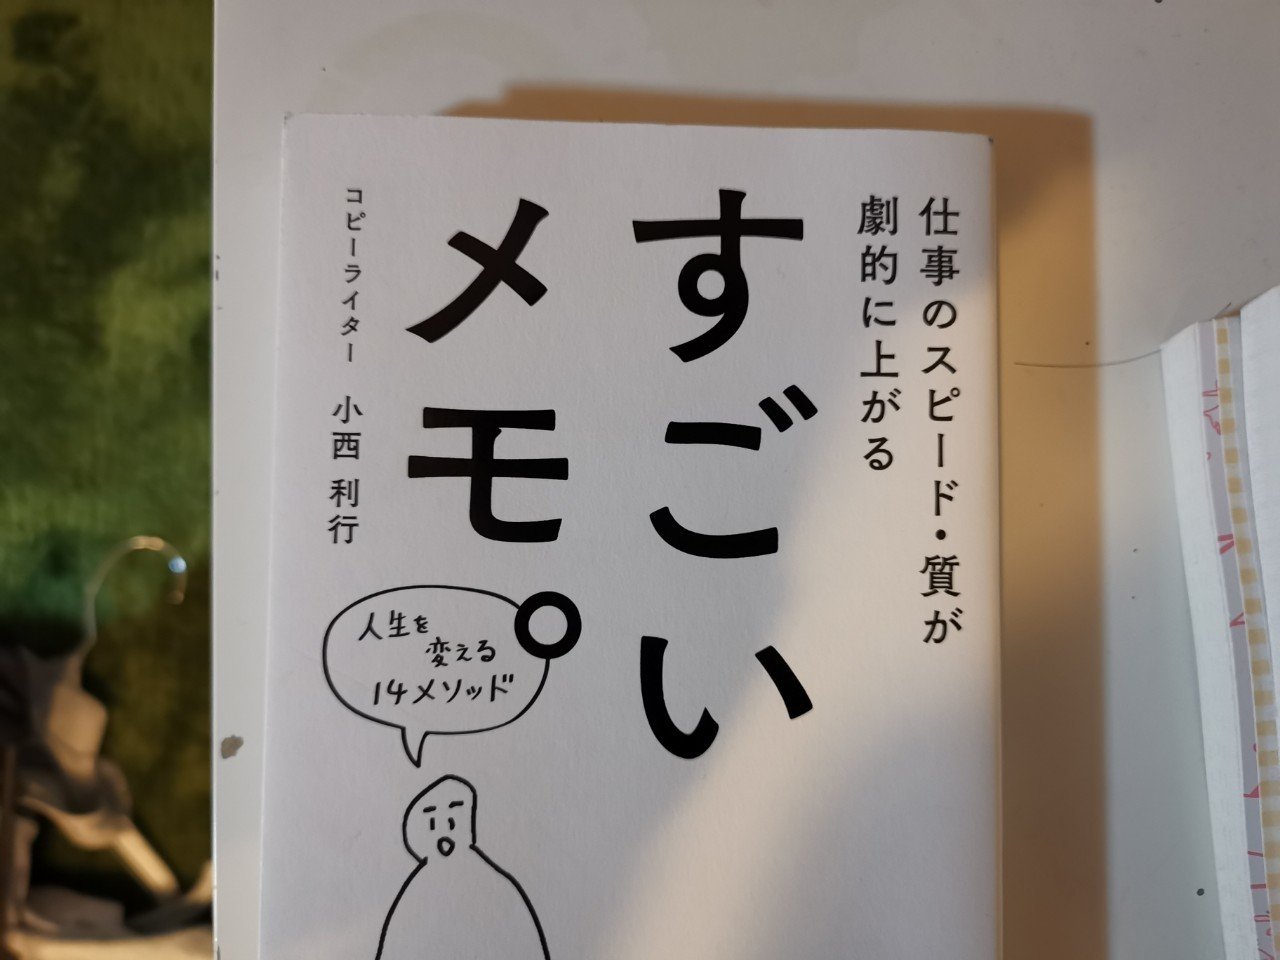 仕事のスピード・質が
劇的に上がる
すごい
メモ。
コピーライター 小西利行
人生を
変える
14メソッド